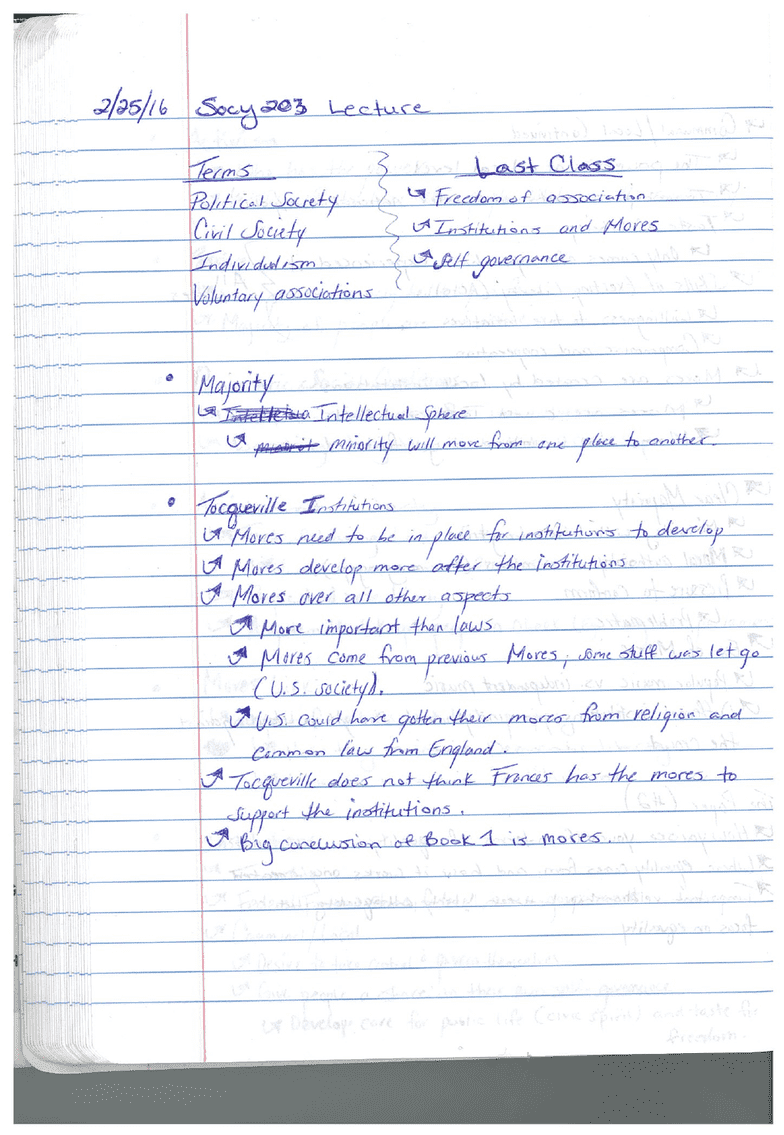 2/25/16 Socy 203 Lecture
Terms
Political Society
Civil Society
Individualism
Voluntary associations
Last Class
↪ Freedom of association
↪ Institutions and Mores
↪ Self governance
• Majority
↪ Intellectual Sphere
↪ minority will move from one place to another.
• Tocqueville Institutions
↪ Mores need to be in place for institutions to develop
↪ Mores develop more after the institutions
↪ Mores over all other aspects
↪ More important than laws
↪ Mores come from previous Mores, some stuff was let go
(U.S. society).
↪ U.S. could have gotten their mores from religion and
common law from England.
↪ Tocqueville does not think Frances has the mores to
support the institutions.
↪ Big conclusion of Book 1 is mores.